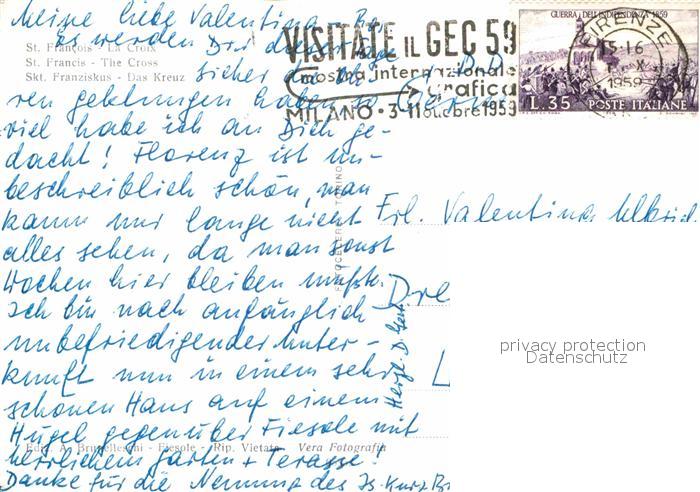 Meine liebe Valentina
es werden Dir diese
St. François - La Croix
St. Francis - The Cross
Skt. Franziskus - Das Kreuz
sicher die Oh-
ren geklungen haben, so
viel habe ich an Dich ge-
dacht! Florenz ist un-
beschreiblich schön, man
kann nur lange nicht
alles sehen, da man sonst
Wochen hier bleiben müßte.
Ich bin nach anfänglich
unbefriedigender Unter-
kunft nun in einem sehr
schönen Haus auf einem
Hügel gegenüber Fiesole mit
Ediz. A. Brunelleschi - Fiesole - Rip. Vietata Vera Fotografia
herrlichem Garten + Terasse!
Danke für die Nennung des
Herzl. D.
VISITATE IL GEC 59
mostra internazionale
grafica
MILANO • 3-11 ottobre 1959
GUERRA DELL'INDIPENDENZA 1859
L. 35 POSTE ITALIANE
FIRENZE
15-16
X
1959
FOTOCELERE TORINO
Frl. Valentina Ulbrich
Dre
L
privacy protection
Datenschutz